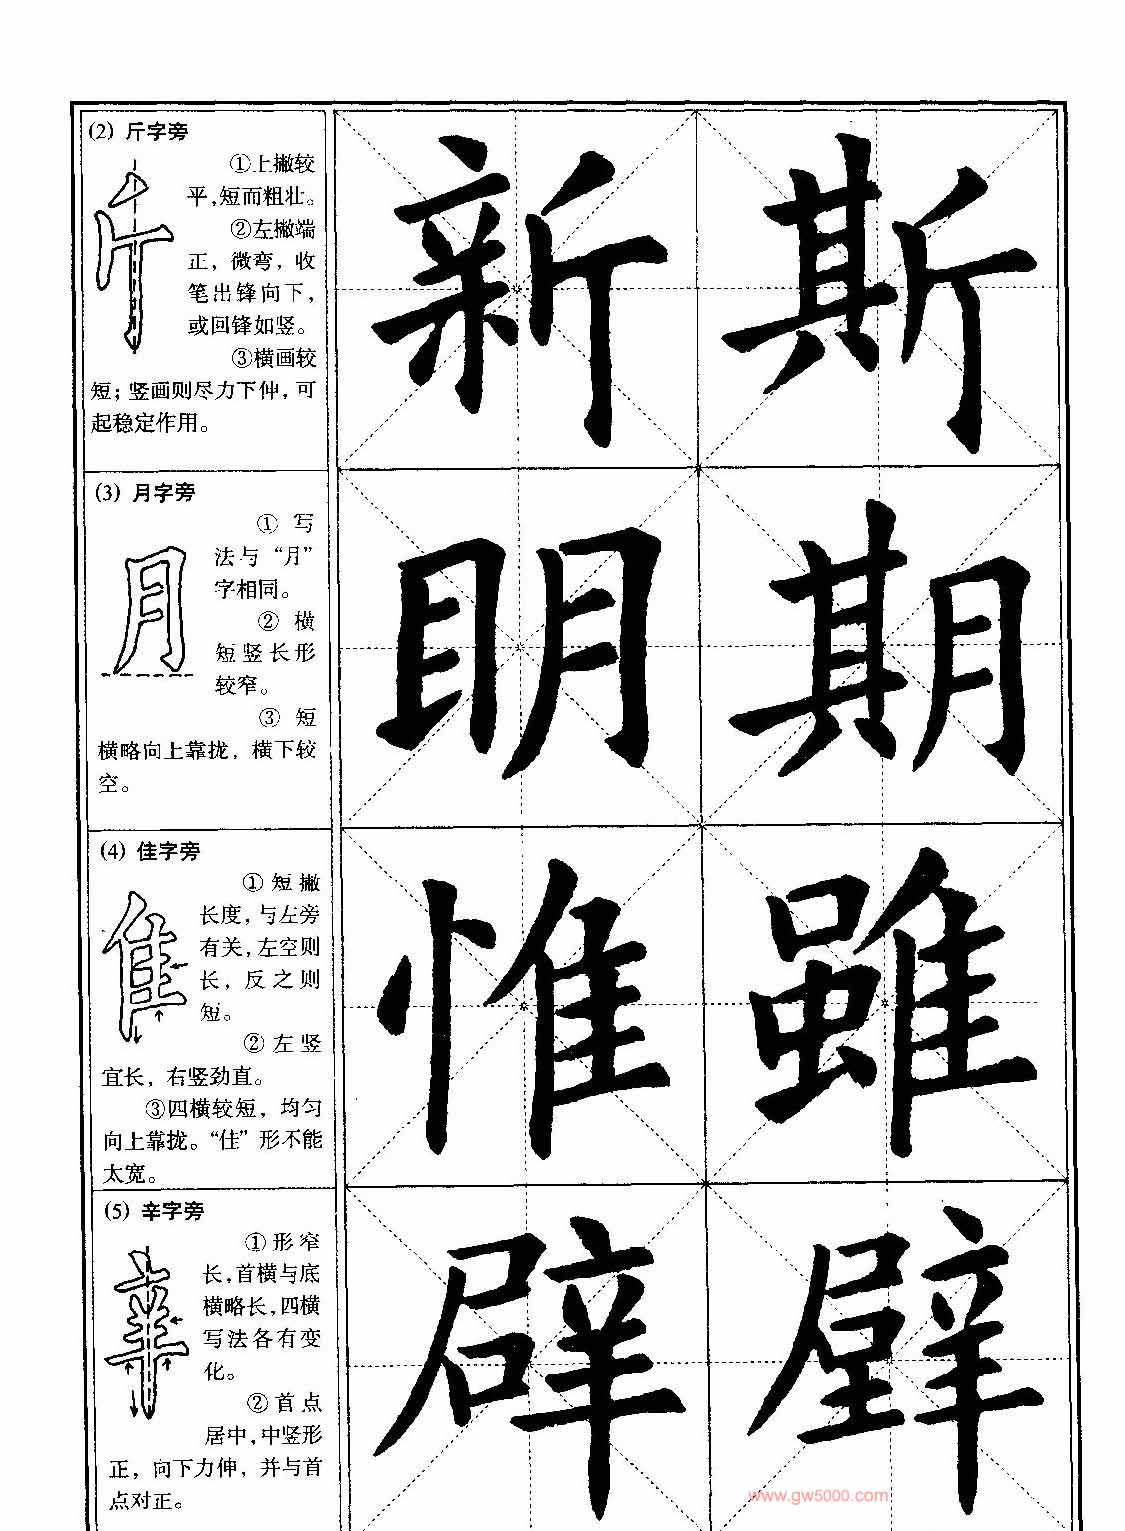 (2) 斤字旁
①上撇较
平,短而粗壮。
②左撇端
正，微弯，收
笔出锋向下，
或回锋如竖。
③横画较
短；竖画则尽力下伸，可
起稳定作用。
新 斯
(3) 月字旁
① 写
法与“月”
字相同。
② 横
短竖长形
较窄。
③ 短
横略向上靠拢，横下较
空。
眀 期
(4) 佳字旁
①短撇
长度，与左旁
有关，左空则
长，反之则
短。
②左竖
宜长，右竖劲直。
③四横较短，均匀
向上靠拢。“佳”形不能
太宽。
惟 雖
(5) 辛字旁
①形窄
长,首横与底
横略长,四横
写法各有变
化。
②首点
居中,中竖形
正，向下力伸，并与首
点对正。
辟 壁
www.gw5000.com